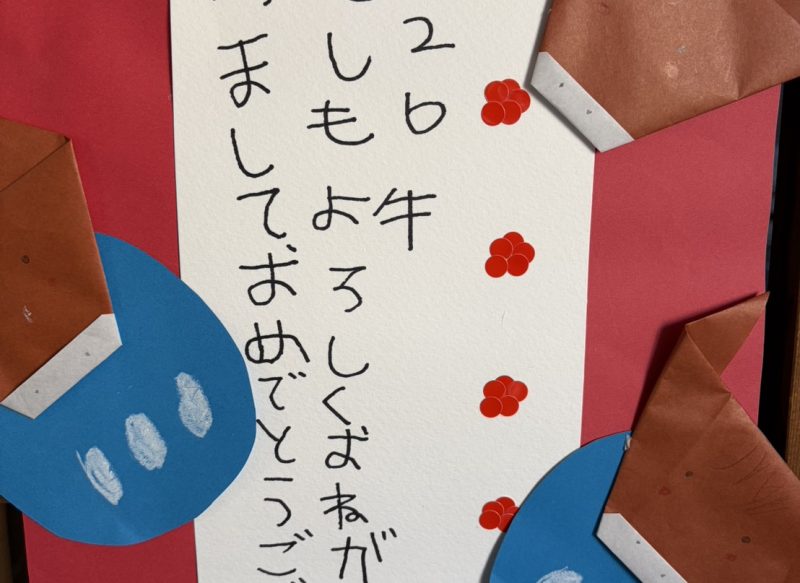 26年
しもよろしくおねが
ましておめでとうご